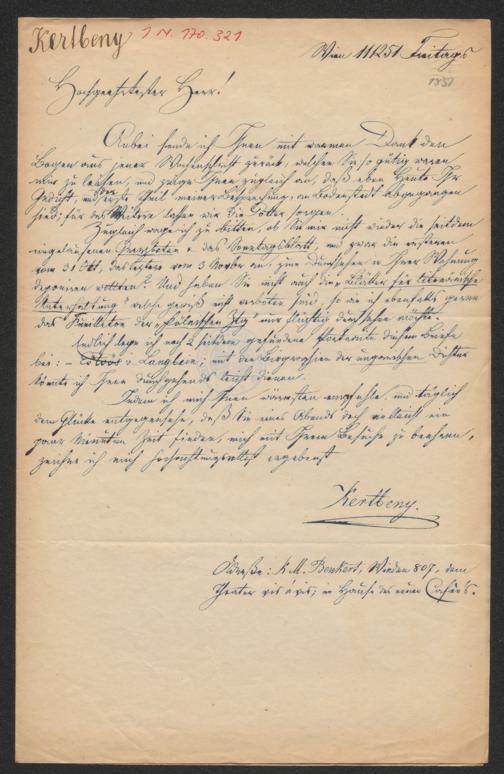 Kertbeny J.N. 170.321
Wien 11/12 51 Freitags
1851
Hochgeehrtester Herr!
Anbei sende ich Ihnen mit warmem Dank den
Bogen aus jener Wochenschrift zurück, welchen Sie so gütig waren
mir zu leihen, und zeige Ihnen zugleich an, daß eben heute Ihr
Gedicht, und der erste Theil meiner Besprechung, an Bodenstedt abgegangen
sind; für das Weitere lassen wir die Götter sorgen.
Zugleich wage ich zu bitten, ob Sie mir nicht wieder die seitdem
eingelaufenen Grenzboten u. das Sonntagsblatt, und zwar die ersteren
vom 31 Okt, das letztere vom 3 Novbr an, zum Durchsehen in Ihrer Wohnung
deponiren wollten? Und haben Sie nicht auch die Blätter für literarische
Unterhaltung? welche gewiß nicht verboten sind, so wie ich ebenfalls gerne
das Feuilleton der Kölnischen Ztg nur flüchtig durchsehen möchte.
Endlich lege ich noch 2 seitdem gefundene Portraite diesem Briefe
bei: Eötvös u. ; mit den Biographien der ungarischen Dichter
könnte ich Ihnen durchgehends leicht dienen.
Indem ich mich Ihnen wärmstens empfehle, und täglich
dem Glücke entgegensehe, daß Sie eines Abends doch vielleicht ein
paar Minuten Zeit finden, mich mit Ihrem Besuche zu beehren,
zeichne ich mich hochachtungsvollst ergebenst
Kertbeny.
Adresse: K. M. Benkert, Wieden 807, dem
Theater vis à vis; im Hause des neuen Cafés.